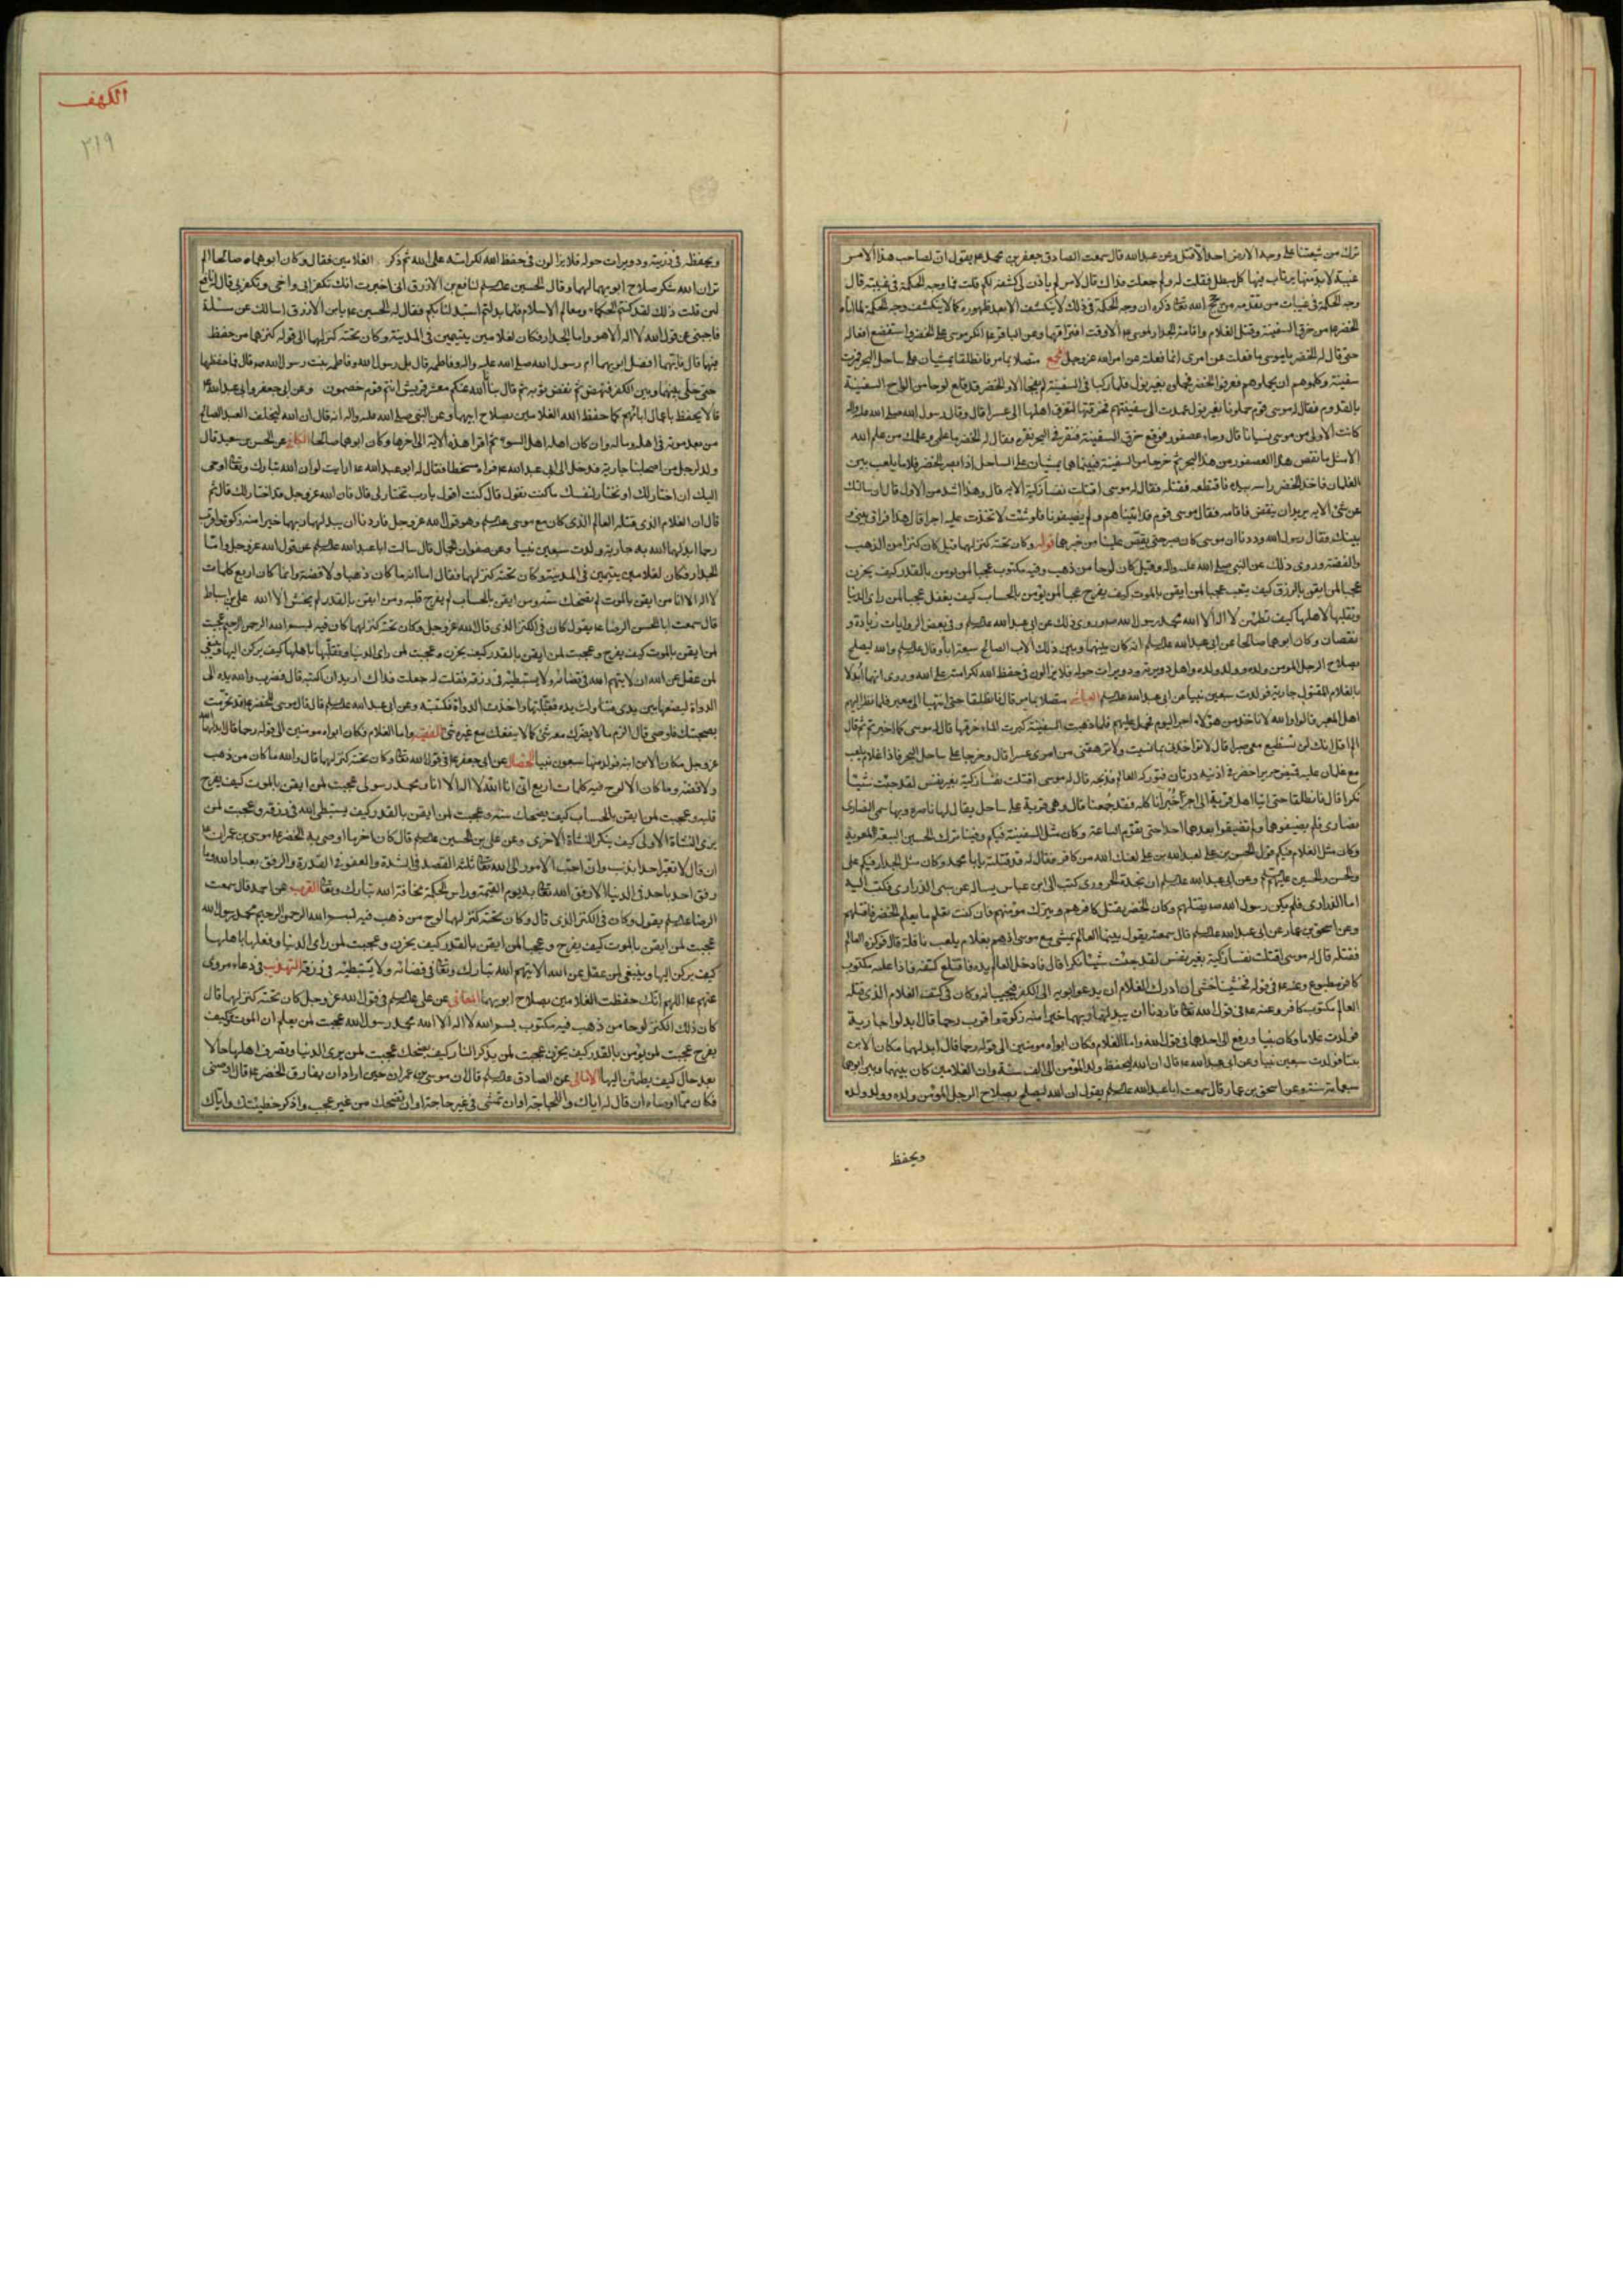 ترك من شيعتنا على وجه الارض احد الا قتل وعن عبدالله قال سمعت الصادق جعفر بن محمد ع يقول ان لصاحب هذا الامر
غيبة لا بد منها يرتاب فيها كل مبطل فقلت له ولم جعلت فداك قال لامر لم ياذن لى كشفه لكم قلت فما وجه الحكمة فى غيبته قال
وجه الحكمة فى غيبات من تقدمه من حجج الله تعالى ذكره ان وجه الحكمة فى ذلك لا ينكشف الا بعد ظهوره كما لا ينكشف وجه الحكمة لما اتاه
الخضر ع من خرق السفينة وقتل الغلام واقامة الجدار لموسى ع الا وقت افتراقهما وعن الباقر ع انكر موسى على الخضر واستفضع افعاله
حتى قال له الخضر يا موسى ما فعلت عن امرى انما فعلت عن امر الله عز وجل متصلا بما مر فانطلقا يمشيان على ساحل البحر فمرت
سفينة وكلموهم ان يحملوهم فعرفوا الخضر فحملوه بغير نول فلما ركبا فى السفينة لم يفجأ الا والخضر قد قلع لوحا من الواح السفينة
بالقدوم فقال له موسى قوم حملونا بغير نول عمدت الى سفينتهم فخرقتها لتغرق اهلها الى عسرا قال وقال رسول الله صلى الله عليه واله
كانت الاولى من موسى نسيانا قال وجاء عصفور فوقع على حرف السفينة فنقر فى البحر نقرة فقال له الخضر ما علمى وعلمك من علم الله
الا مثل ما نقص هذا العصفور من هذا البحر ثم خرجا من السفينة فبينا هما يمشيان على الساحل اذا بصر الخضر غلاما يلعب بين
الغلمان فاخذ الخضر راسه بيده فاقتطعه فقتله فقال له موسى اقتلت نفسا زكية الاية قال وهذا اشد من الاول قال ان سالتك
عن شئ الاية يريد ان ينقض فاقامه فقال موسى قوم قد اتيناهم ولم يضيفونا فلو شئت لاتخذت عليه اجرا قال هذا فراق بينى و
بينك فقال رسول الله وددنا ان موسى كان صبر حتى يقص علينا من خبرهما قوله وكان تحته كنز لهما قيل كان كنزا من الذهب
والفضة وروى ذلك عن النبى صلى الله عليه واله وقيل كان لوحا من ذهب وفيه مكتوب عجبا لمن يومن بالقدر كيف يحزن
عجبا لمن ايقن بالرزق كيف يتعب عجبا لمن ايقن بالموت كيف يفرح عجبا لمن يؤمن بالحساب كيف يغفل عجبا لمن راى الدنيا
وتقلبها باهلها كيف تطمئن لا اله الا الله محمد رسول الله ص وروى ذلك عن ابى عبدالله عليه السلم وفى بعض الروايات زيادة و
نقصان وكان ابوهما صالحا عن ابى عبدالله عليه السلم انه كان بينهما وبين ذلك الاب الصالح سبعة اباء وقال عليه السلم والله ليصلح
بصلاح الرجل المومن ولده وولد ولده واهل دويرته ودويرات حوله فلا يزالون فى حفظ الله لكرامته على الله وروى انهما ابدلا
بالغلام المقتول جارية فولدت سبعين نبيا عن ابى عبدالله عليه السلم متصلا بما مر قال فانطلقا حتى انتهيا الى معبر فلما نظر اليهم
اهل المعبر قالوا والله لا ناخذ من هؤلاء اجرا اليوم نحملهم فلما ذهبت السفينة كبرت الماء خرقها قال له موسى كما اخبرتم ثم قال
الم اقل انك لن تستطيع معى صبرا قال لا تؤاخذنى بما نسيت ولا ترهقنى من امرى عسرا قال وخرجا على ساحل البحر فاذا غلام يلعب
مع غلمان عليه قميص حرير اخضر فى اذنيه درتان فتوركه العالم فذبحه قال له موسى اقتلت نفسا زكية بغير نفس لقد جئت شيئا
نكرا قال فانطلقا حتى اتيا اهل قرية الى اجرا خبزا ناكله فقد جعنا قال وهى قرية على ساحل يقال لها ناصره وبها سمى النصارى
نصارى فلم يضيفوهما ولم يضيفوا بعدهما احدا حتى تقوم الساعة وكان مثل السفينة فيكم وفينا ترك الحسين البيعة لمعوية
وكان مثل الغلام فيكم قول الحسن بن على لعبدالله بن على لعنك الله من كافر فقال له قد قتلته يا ابا محمد وكان مثل الجدار فيكم على
والحسن والحسين عليهم السلم وعن ابى عبدالله عليه السلم ان نجدة الحرورى كتب الى ابن عباس يساله عن سبى الذرارى فكتب اليه
اما الذرارى فلم يكن رسول الله ص يقتلهم وكان الخضر يقتل كافرهم ويترك مؤمنهم فان كنت تعلم ما يعلم الخضر فاقتلهم
وعن اسحق بن عمار عن ابى عبدالله عليه السلم قال سمعته يقول بينما العالم يمشى مع موسى اذ هم بغلام يلعب قال فوكزه العالم
فقتله قال له موسى اقتلت نفسا زكية بغير نفس لقد جئت شيئا نكرا قال فادخل العالم يده فاقتلع كتفه فاذا عليه مكتوب
كافر مطبوع وعنه ع فى قوله فخشينا خشى ان ادرك الغلام ان يدعو ابويه الى الكفر فيجيبانه وكان فى كتف الغلام الذى قتله
العالم مكتوب كافر وعنه ع فى قول الله تعالى فاردنا ان يبدلهما ربهما خيرا منه زكوة واقرب رحما قال ابدلوا جارية
فولدت غلاما وكان نبيا ورفع الى احدهما فى قول الله واما الغلام فكان ابواه مومنين الى قوله رحما قال ابدلهما مكان الابن
بنتا فولدت سبعين نبيا وعن ابى عبدالله ع قال ان الله ليحفظ ولد المؤمن الى الف سنة وان الغلامين كان بينهما وبين ابوهما
سبعماية سنة وعن اسحق بن عمار قال سمعت ابا عبدالله عليه السلم يقول ان الله ليصلح بصلاح الرجل المؤمن ولده وولد ولده
ويحفظه
الكهف
٢١٩
ويحفظه فى ذريته ودويرات حوله فلا يزالون فى حفظ الله لكرامته على الله ثم ذكر الغلامين فقال وكان ابوهما صالحا الم
تر ان الله شكر صلاح ابويهما لهما وقال الحسين عليه السلم لنافع بن الازرق انى اخبرت انك تكفر ابى واخى وتكفرنى قال نافع
لئن قلت ذلك لقد كنتم الحكام ومعالم الاسلام فلما بدلتم استبدلنا بكم فقال له الحسين ع يا ابن الازرق اسالك عن مسئلة
فاجبنى عن قول الله لا اله الا هو واما الجدار فكان لغلامين يتيمين فى المدينة وكان تحته كنز لهما الى قوله كنزهما من حفظ
فيهما قال قال فايهما افضل ابويهما ام رسول الله صلى الله عليه واله وفاطمه قال بل رسول الله وفاطمه بنت رسول الله ص قال فما حفظهما
حتى خلى بينهما وبين الكفر فنهض ثم نفض ثوبه ثم قال نبأنا الله عنكم معشر قريش انتم قوم خصمون وعن ابى جعفر وابى عبدالله ع
قالا يحفظ باعمال ابائهم كما حفظ الله الغلامين بصلاح ابيهما وعن النبى صلى الله عليه واله انه قال ان الله ليخلف العبد الصالح
من بعد موته فى اهله وماله وان كان اهله اهل السوء ثم اقرا هذه الاية الى اخرها وكان ابوهما صالحا الكافى عن الحسن بن سعيد قال
ولد لرجل من اصحابنا جارية فدخل الى ابى عبدالله ع فراه متسخطا فقال له ابو عبدالله ع ارايت لو ان الله تبارك وتعالى اوحى
اليك ان اختار لك او تختار لنفسك ما كنت تقول قال كنت اقول يا رب تختار لى قال فان الله عز وجل قد اختار لك قال ثم
قال ان الغلام الذى قتله العالم الذى كان مع موسى عليه السلم وهو قول الله عز وجل فاردنا ان يبدلهما ربهما خيرا منه زكوة واقرب
رحما ابدلهما الله به جارية ولدت سبعين نبيا وعن صفوان الجمال قال سالت ابا عبدالله عليه السلم عن قول الله عز وجل واما
الجدار فكان لغلامين يتيمين فى المدينة وكان تحته كنز لهما فقال اما انه ما كان ذهبا ولا فضة وانما كان اربع كلمات
لا اله الا انا من ايقن بالموت لم يضحك سنه ومن ايقن بالحساب لم يفرح قلبه ومن ايقن بالقدر لم يخش الا الله على بن اسباط
قال سمعت ابا الحسن الرضا ع يقول كان فى الكنز الذى قال الله عز وجل وكان تحته كنز لهما كان فيه بسم الله الرحمن الرحيم عجبت
لمن ايقن بالموت كيف يفرح وعجبت لمن ايقن بالقدر كيف يحزن وعجبت لمن راى الدنيا وتقلبها باهلها كيف يركن اليها وينبغى
لمن عقل عن الله ان لا يتهم الله فى قضائه ولا يستبطئه فى رزقه فقلت له جعلت فداك اريد ان اكتبه قال فضرب والله يده الى
الدواة ليضعها بين يدى فتناولت يده فقبلتها واخذت الدواة فكتبته وعن ابى عبدالله عليه السلم قال قال موسى للخضر ع قد تحرمت
بصحبتك فاوصنى قال الزم ما لا يضرك معه شئ كما لا ينفعك مع غيره شئ الفقيه واما الغلام فكان ابواه مومنين الى قوله رحما قال ابدلهما الله
عز وجل مكان الابن ابنة فولد منها سبعون نبيا الخصال عن ابى جعفر ع فى قول الله تعالى وكان تحته كنز لهما قال والله ما كان من ذهب
ولا فضة وما كان الا لوح فيه كلمات اربع انى انا الله لا اله الا انا ومحمد رسولى عجبت لمن ايقن بالموت كيف يفرح
قلبه وعجبت لمن ايقن بالحساب كيف يضحك سنه وعجبت لمن ايقن بالقدر كيف يستبطى الله فى رزقه وعجبت لمن
يرى النشاة الاولى كيف ينكر النشاة الاخرى وعن على بن الحسين عليه السلم قال كان اخر ما اوصى به الخضر ع موسى بن عمران ع
ان قال لا تعير احدا بذنب وان احب الامور الى الله تعالى ثلثة القصد فى الشدة والعفو فى القدرة والرفق بعباد الله وما
رفق احد باحد فى الدنيا الا رفق الله تعالى به يوم القيمة وراس الحكمة مخافة الله تبارك وتعالى القرب عن احمد قال سمعت
الرضا عليه السلم يقول وكان فى الكنز الذى قال وكان تحته كنز لهما لوح من ذهب فيه بسم الله الرحمن الرحيم محمد رسول الله
عجبت لمن ايقن بالموت كيف يفرح وعجبا لمن ايقن بالقدر كيف يحزن وعجبت لمن راى الدنيا وفعلها باهلها
كيف يركن اليها وينبغى لمن عقل عن الله الا يتهم الله تبارك وتعالى فى قضائه ولا يستبطئه فى رزقه التهذيب فى دعاء مروى
عنهم ع اللهم انك حفظت الغلامين بصلاح ابويهما المعانى عن على عليه السلم فى قول الله عز وجل كان تحته كنز لهما قال
كان ذلك الكنز لوحا من ذهب فيه مكتوب بسم الله لا اله الا الله محمد رسول الله عجبت لمن يعلم ان الموت كيف
يفرح عجبت لمن يؤمن بالقدر كيف يحزن عجبت لمن يذكر النار كيف يضحك عجبت لمن يرى الدنيا وتصرف اهلها حالا
بعد حال كيف يطمئن اليها الامالى عن الصادق عليه السلم قال ان موسى بن عمران حين اراد ان يفارق الخضر ع قال اوصنى
فكان مما اوصاه ان قال له اياك واللجاجة او ان تمشى فى غير حاجة او ان تضحك من غير عجب واذكر خطيئتك واياك